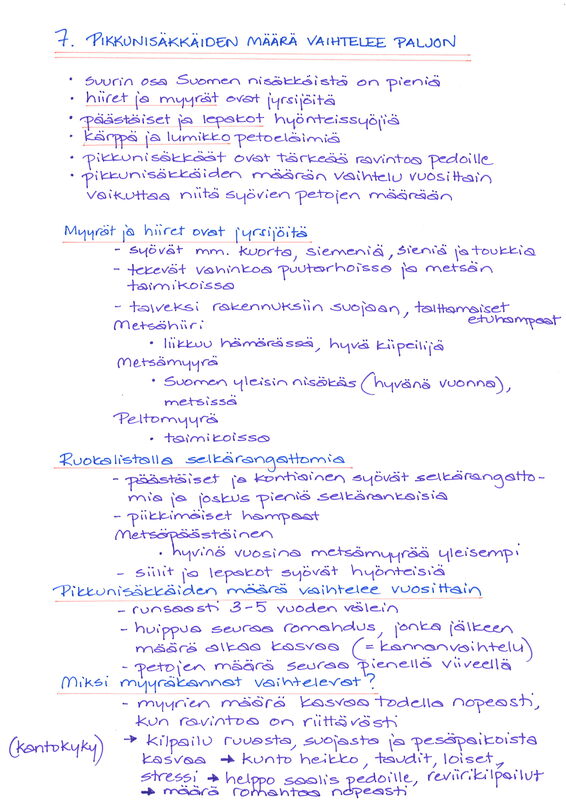 7. PIKKUNISÄKKÄIDEN MÄÄRÄ VAIHTELEE PALJON
• suurin osa Suomen nisäkkäistä on pieniä
• hiiret ja myyrät ovat jyrsijöitä
• päästäiset ja lepakot hyönteissyöjiä
• kärppä ja lumikko petoeläimiä
• pikkunisäkkäät ovat tärkeää ravintoa pedoille
• pikkunisäkkäiden määrän vaihtelu vuosittain
vaikuttaa niitä syövien petojen määrään
Myyrät ja hiiret ovat jyrsijöitä
- syövät mm. kuorta, siemeniä, sieniä ja toukkia
- tekevät vahinkoa puutarhoissa ja metsän
taimikoissa
- talveksi rakennuksiin suojaan, talttamaiset
etuhampaat
Metsähiiri
• liikkuu hämärässä, hyvä kiipeilijä
Metsämyyrä
• Suomen yleisin nisäkäs (hyvänä vuonna),
metsissä
Peltomyyrä
• taimikoissa
Ruokalistalla selkärangattomia
- päästäiset ja kontiainen syövät selkärangatto-
mia ja joskus pieniä selkärankaisia
- piikkimäiset hampaat
Metsäpäästäinen
• hyvinä vuosina metsämyyrää yleisempi
- siilit ja lepakot syövät hyönteisiä
Pikkunisäkkäiden määrä vaihtelee vuosittain
- runsaasti 3-5 vuoden välein
- huippua seuraa romahdus, jonka jälkeen
määrä alkaa kasvaa (= kannanvaihtelu)
- petojen määrä seuraa pienellä viiveellä
Miksi myyräkannat vaihtelevat?
- myyrien määrä kasvaa todella nopeasti,
kun ravintoa on riittävästi
(kantokyky) → kilpailu ruuasta, suojasta ja pesäpaikoista
kasvaa → kunto heikko, taudit, loiset,
stressi → helppo saalis pedoille, reviirikilpailut
→ määrä romahtaa nopeasti